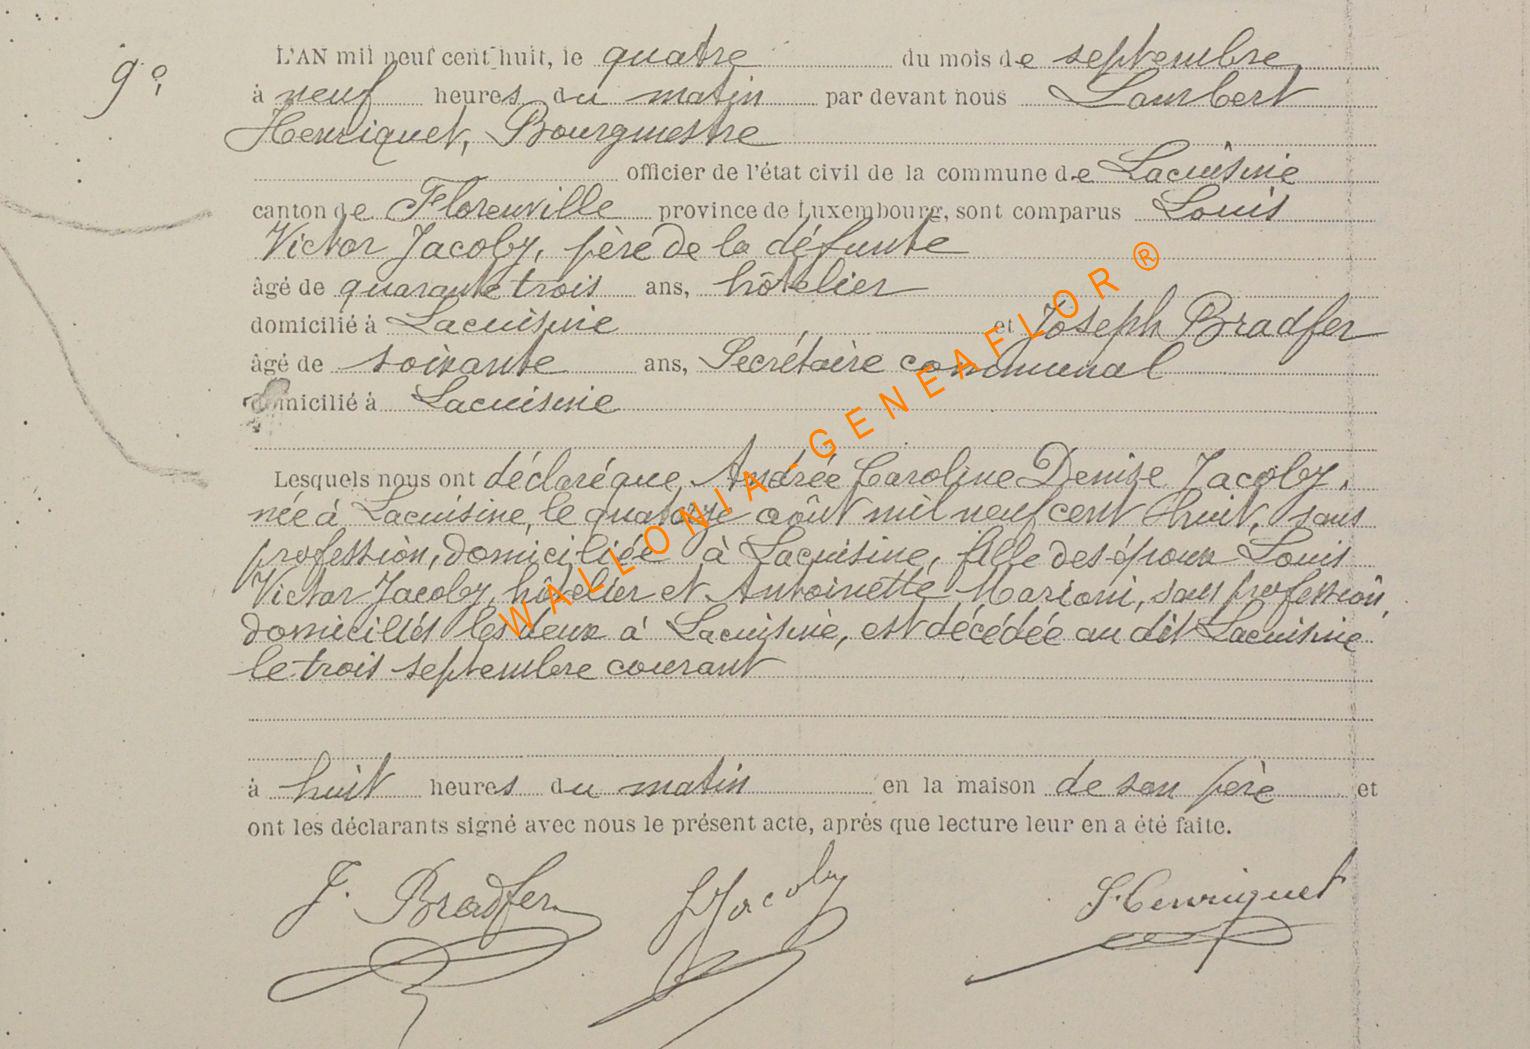 9°.
L'AN mil neuf cent huit, le quatre du mois de septembre,
à neuf heures du matin par devant nous Lambert
Henriquet, Bourgmestre
officier de l'état civil de la commune de Lacuisine
canton de Florenville province de Luxembourg, sont comparus Louis
Victor Jacoby, père de la défunte
âgé de quarante trois ans, hôtelier
domicilié à Lacuisine et Joseph Bradfer
âgé de soixante ans, Secrétaire communal
domicilié à Lacuisine
Lesquels nous ont déclaré que Andrée Caroline Denize Jacoby,
née à Lacuisine, le quatorze août mil neuf cent huit, sans
profession, domiciliée à Lacuisine, fille des époux Louis
Victor Jacoby, hôtelier et Antoinette Marioni, sans profession,
domiciliés les deux à Lacuisine, est décédée au dit Lacuisine
le trois septembre courant
à huit heures du matin en la maison de son père et
ont les déclarants signé avec nous le présent acte, après que lecture leur en a été faite.
J. Bradfer LJacoby L.Henriquet
WALLONIA-GENEAFLOR®